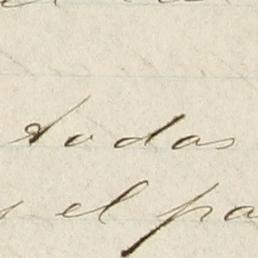 todas
y el pa